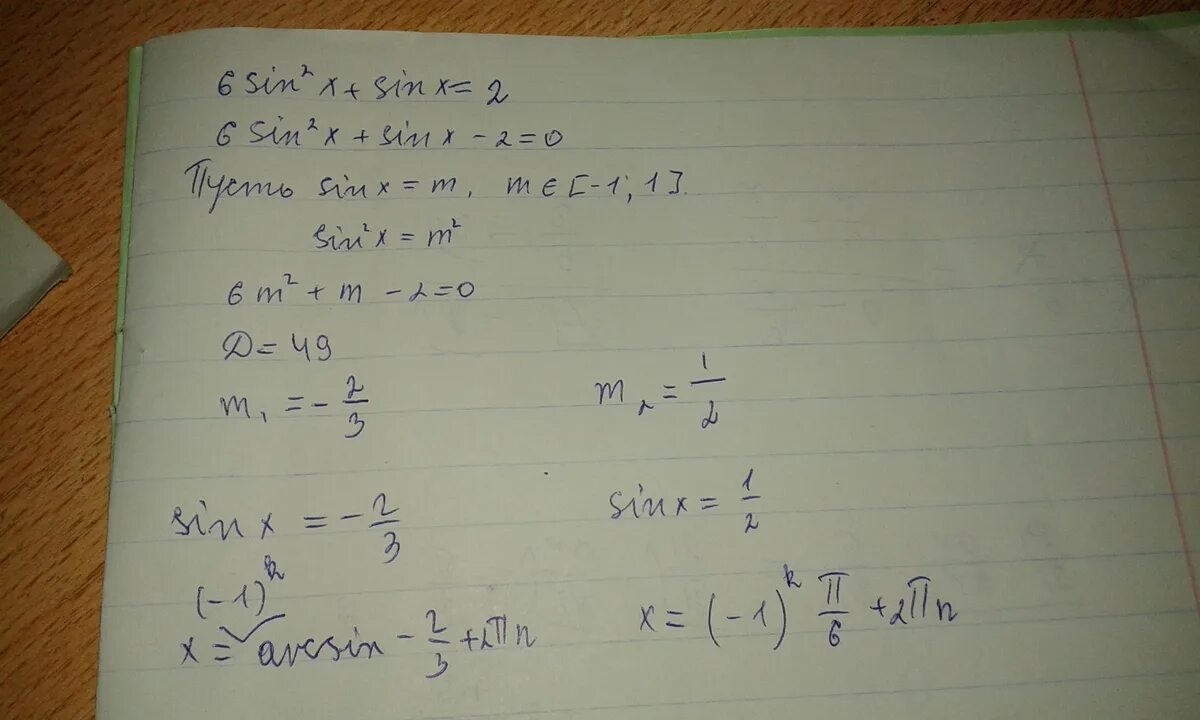 6 sin² x + sin x = 2
6 sin² x + sin x - 2 = 0
Пусть sin x = m, m ∈ [-1; 1].
sin² x = m²
6 m² + m - 2 = 0
D = 49
m₁ = - 2/3 m₂ = 1/2
sin x = - 2/3 sin x = 1/2
(-1)ᵏ
x = arcsin - 2/3 + 2πn x = (-1)ᵏ π/6 + 2πn